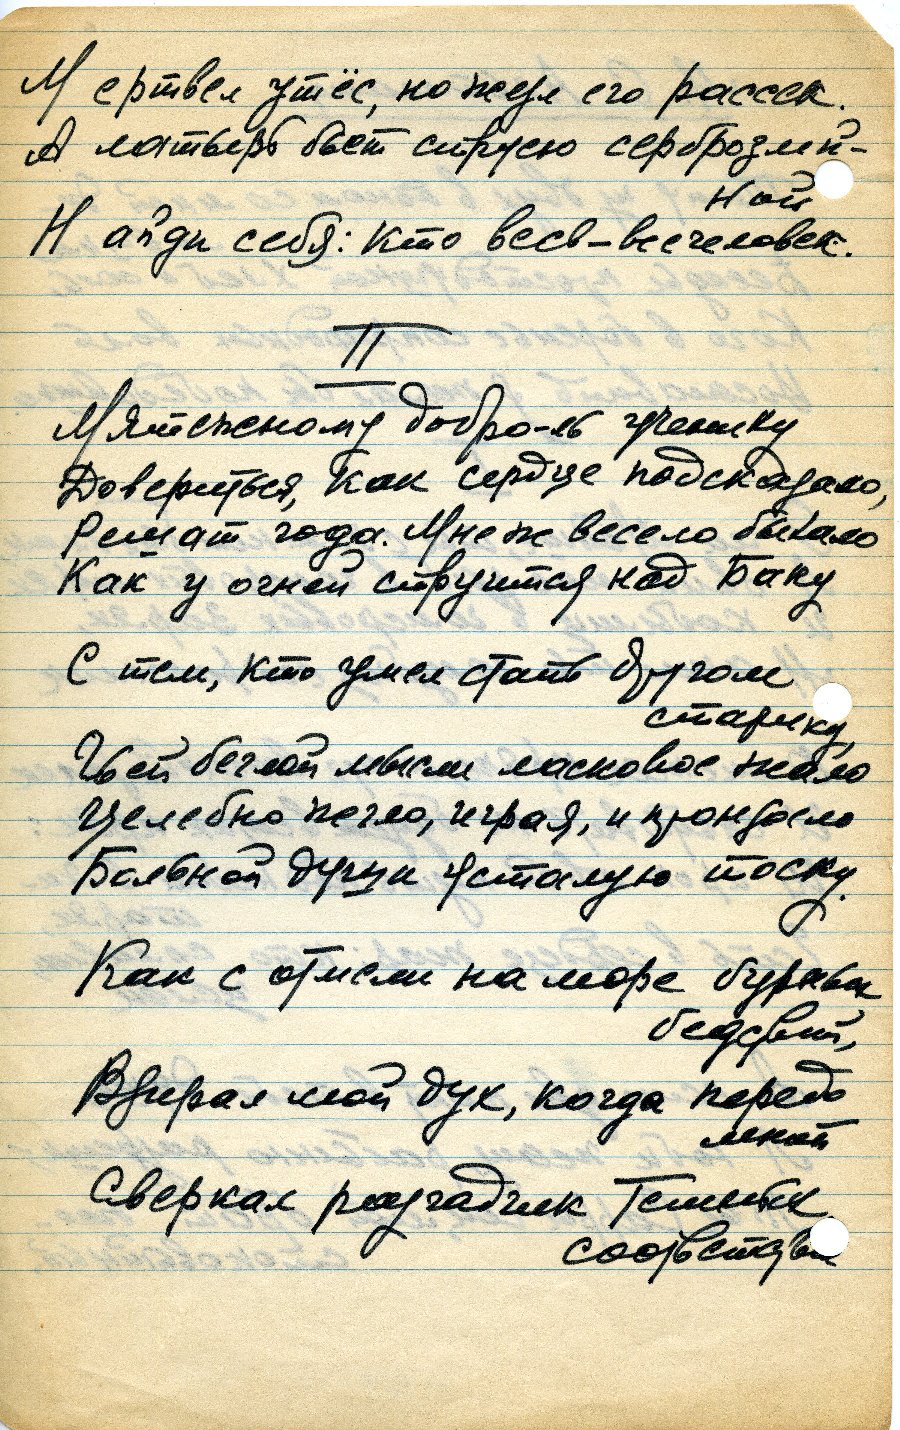 Мертвел утёс, но жезл его рассек.
Алатырь бьет струею сереброзмей-
ной
Найди себя: кто весь – всечеловек.
II
Мятежному добро-ль ученику
Довериться, как сердце подсказало,
Решат года. Мне ж весело бывало
Как у огней струится над Баку
С тем, кто умел стать другом
старику,
Чьей беглой мысли ласковое жало
Целебно жгло, играя, и пронзало
Больной души усталую тоску.
Как с отмели на море бурных
бедствий,
Взирал мой дух, когда передо
мной
Сверкал разгадчик Гетевых
соответствий